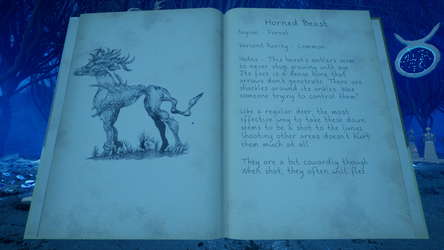 Horned Beast
Region - Forest
Variant Rarity - Common
Notes - This beast's antlers seem
to never stop growing with age.
Its face is a dense bone that
arrows don't penetrate. There are
shackles around its ankles. Was
someone trying to control them?
Like a regular deer, the most
effective way to take these down
seems to be a shot to the lungs.
Shooting other areas doesn't hurt
them much at all.
They are a bit cowardly though
when shot, they often will flee.